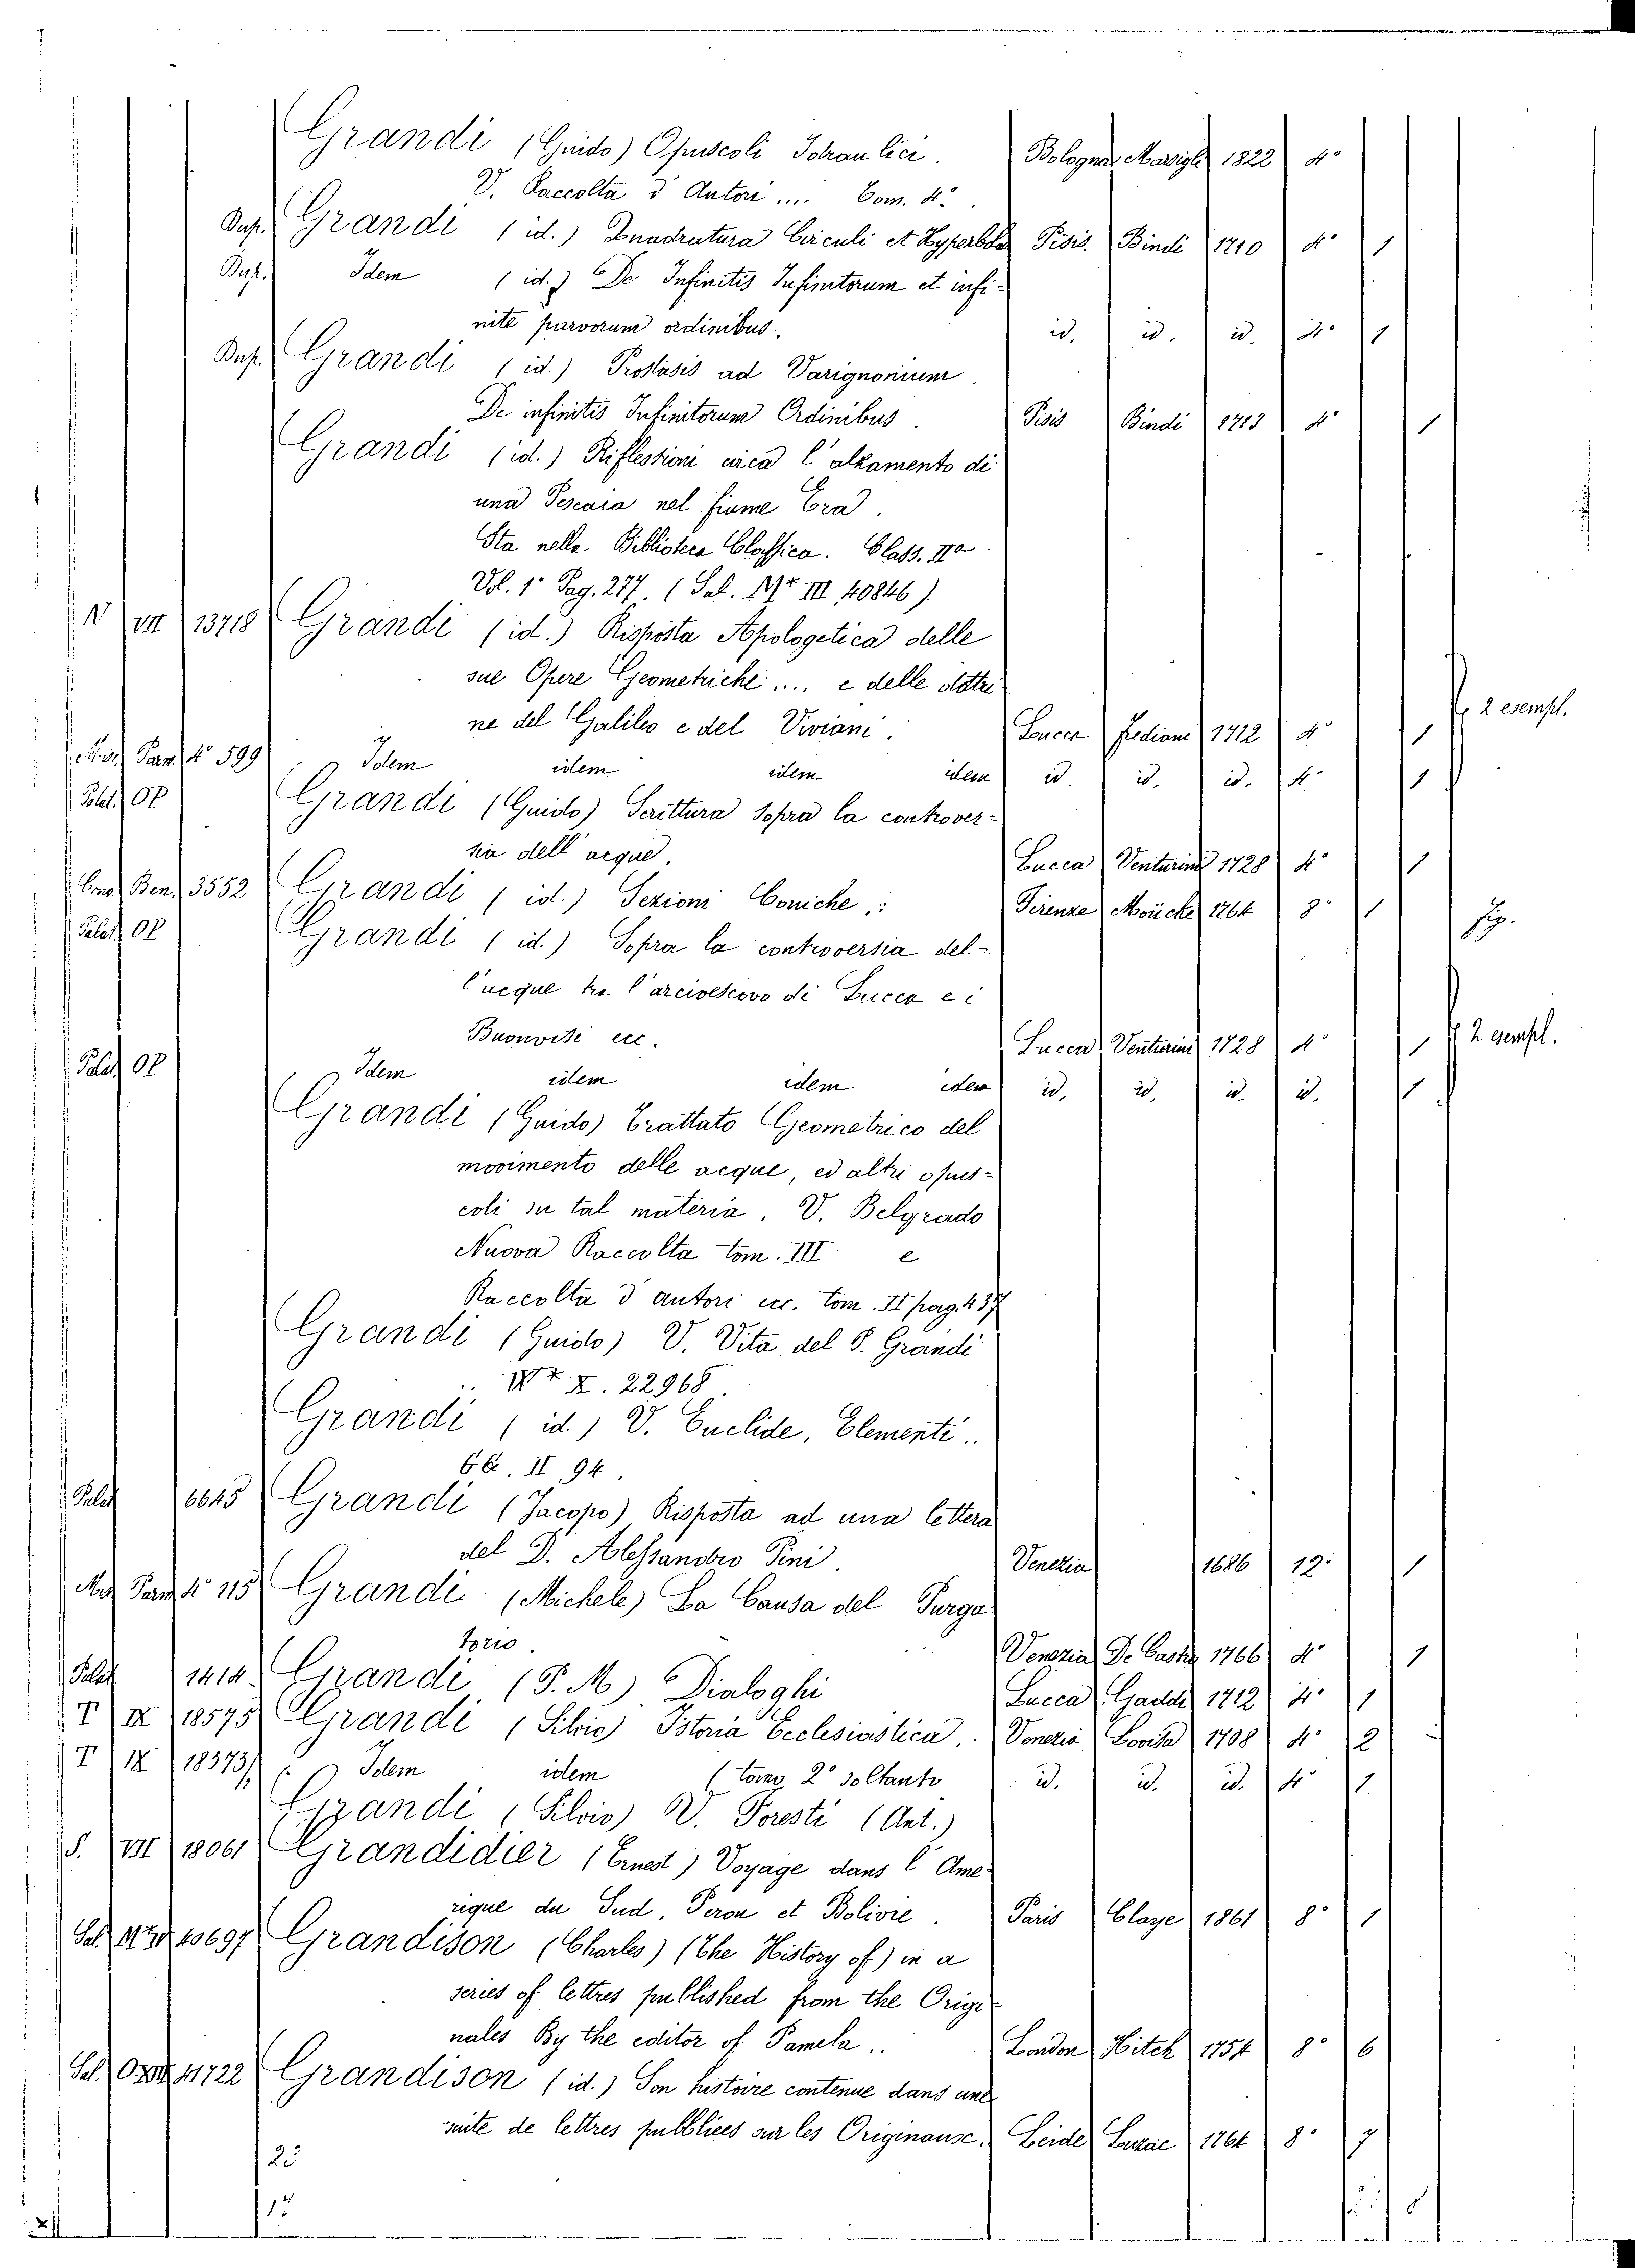 Grandi (Guido) Opuscoli Idraulici. Bologna Marsigli 1822 4°
V. Raccolta d'Autori .... Tom. 4°.
Dup. Grandi (id.) Quadratura Circuli et Hyperbolae Pisis. Bindi 1710 4° 1
Dup. Idem (id.) De Infinitis Infinitorum et infi-
nite parvorum ordinibus. id. id. id. 4° 1
Dup. Grandi (id.) Prostasis ad Varignonium.
De infinitis Infinitorum Ordinibus. Pisis Bindi 1713 4° 1
Grandi (id.) Riflessioni circa l'alzamento di
una Pescaia nel fiume Era.
Sta nella Biblioteca Classica. Class. IIa
Vol. 1° Pag. 277. (Sal. III 40846)
N VII 13718 Grandi (id.) Risposta Apologetica delle
sue Opere Geometriche .... e delle dottri
ne del Galileo e del Viviani. Lucca Frediani 1712 4° 1 2 esempl.
Misc. Pam. 4° 599 Idem idem idem idem id. id. id. 4° 1
Palat. OP Grandi (Guido) Scrittura sopra la controver-
sia dell'acque. Lucca Venturini 1728 4° 1
Ben. 3552 Grandi (id.) Sezioni Coniche.: Firenze Moücke 1764 8° 1 fig.
Palat. OP Grandi (id.) Sopra la controversia del-
l'acque tra l'arcivescovo di Lucca e i
Buonvisi ecc. Lucca Venturini 1728 4° 1 2 esempl.
Palat. OP Idem idem idem idem id. id. id. id. 1
Grandi (Guido) Trattato Geometrico del
movimento delle acque, ed altri opus-
coli su tal materia. V. Belgrado
Nuova Raccolta tom. III e
Raccolta d'autori ecc. tom. II pag. 437
Grandi (Guido) V. Vita del P. Grandi
X. 22968.
Grandi (id.) V. Euclide, Elementi..
II 94.
Palat 6645 Grandi (Jacopo) Risposta ad una lettera
del D. Alessandro Pini. Venezia 1686 12° 1
Misc. Pam. 4° 115 Grandi (Michele) La Causa del Purga
torio. Venezia De Castro 1766 4° 1
Palat 1414 Grandi (P. M.) Dialoghi Lucca Gaddi 1712 4° 1
T IX 18573 Grandi (Silvio) Istoria Ecclesiastica. Venezia Lovisa 1708 4° 2
T IX 18573/2 Idem idem (tomo 2° soltanto id. id. id. 4° 1
Grandi (Silvio) V. Foresti (Ant.)
S. VII 18061 Grandidier (Ernest) Voyage dans l'Ame-
rique du Sud, Perou et Bolivie. Paris Claye 1861 8° 1
Sal. 40697 Grandison (Charles) (The History of) in a
series of lettres published from the Origi-
nales By the editor of Pamela.. London Hitch 1754 8° 6
Sal. 41722 Grandison (id.) Son histoire contenue dans une
suite de lettres pubbliees sur les Originause. Leide Luzac 1764 8° 7
23
17